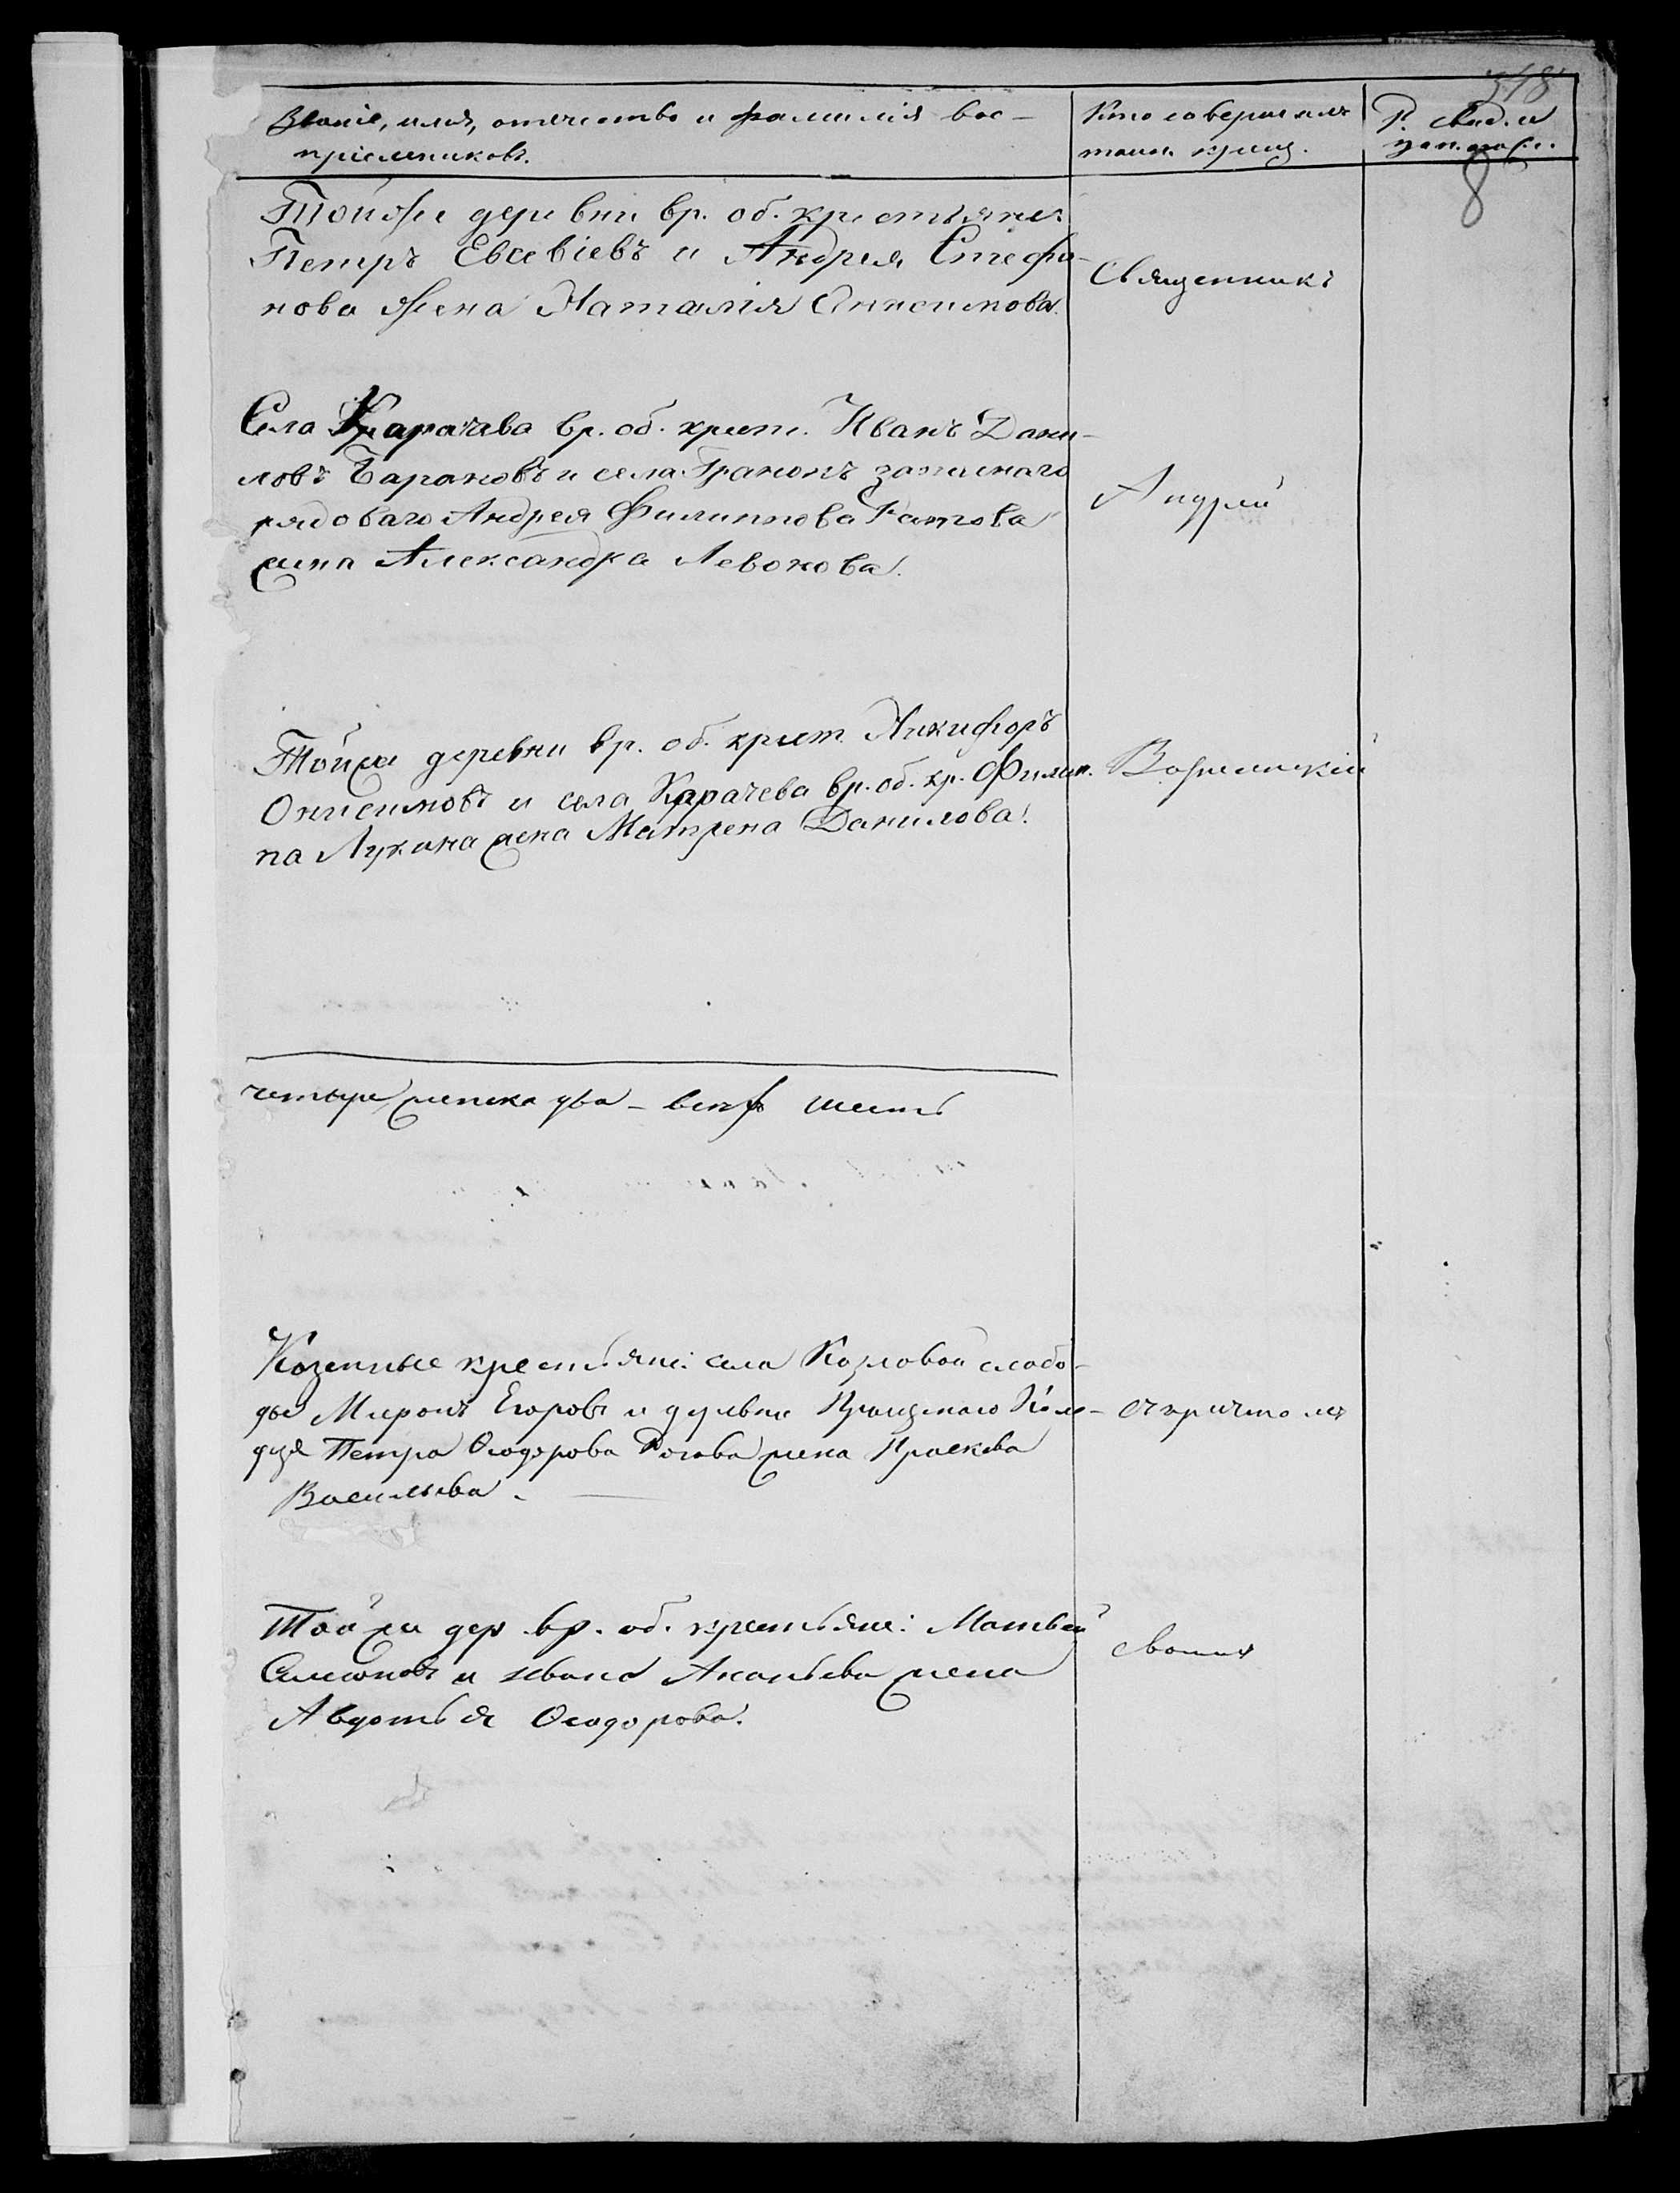 318
Званіе, имя, отечество и фамилія вос-
пріемниковъ.
Кто совершалъ
таин. крещ.
Р. свид. и
8
Тойже деревни вр. об. крестьяне:
Петръ Евсевіевъ и Андрея Стефа-
нова жена Наталія Анисимова.
Священникъ
Села Карачева вр. об. крест. Иванъ Дани-
ловъ Барановъ и села запаснаго
рядоваго Андрея Филиппова
жена Александра Левонова.
Андрей
Тойже деревни вр. об. крест. Никифоръ
Онисимовъ и села Карачева вр. об. кр. Филип-
па Лукина жена Матрена Данилова.
Вознесенскій
четыре женска два - всѣхъ шесть
Казенные крестьяне: села Козловой слобо-
ды Миронъ Егоровъ и деревни Коло-
дезя Петра Ѳеодорова жена Праскева
Васильева.
съ причтомъ
Тойже дер. вр. об. крестьяне: Матвей
Симоновъ и Ивана Ананьева жена
Авдотья Ѳеодорова.
своимъ